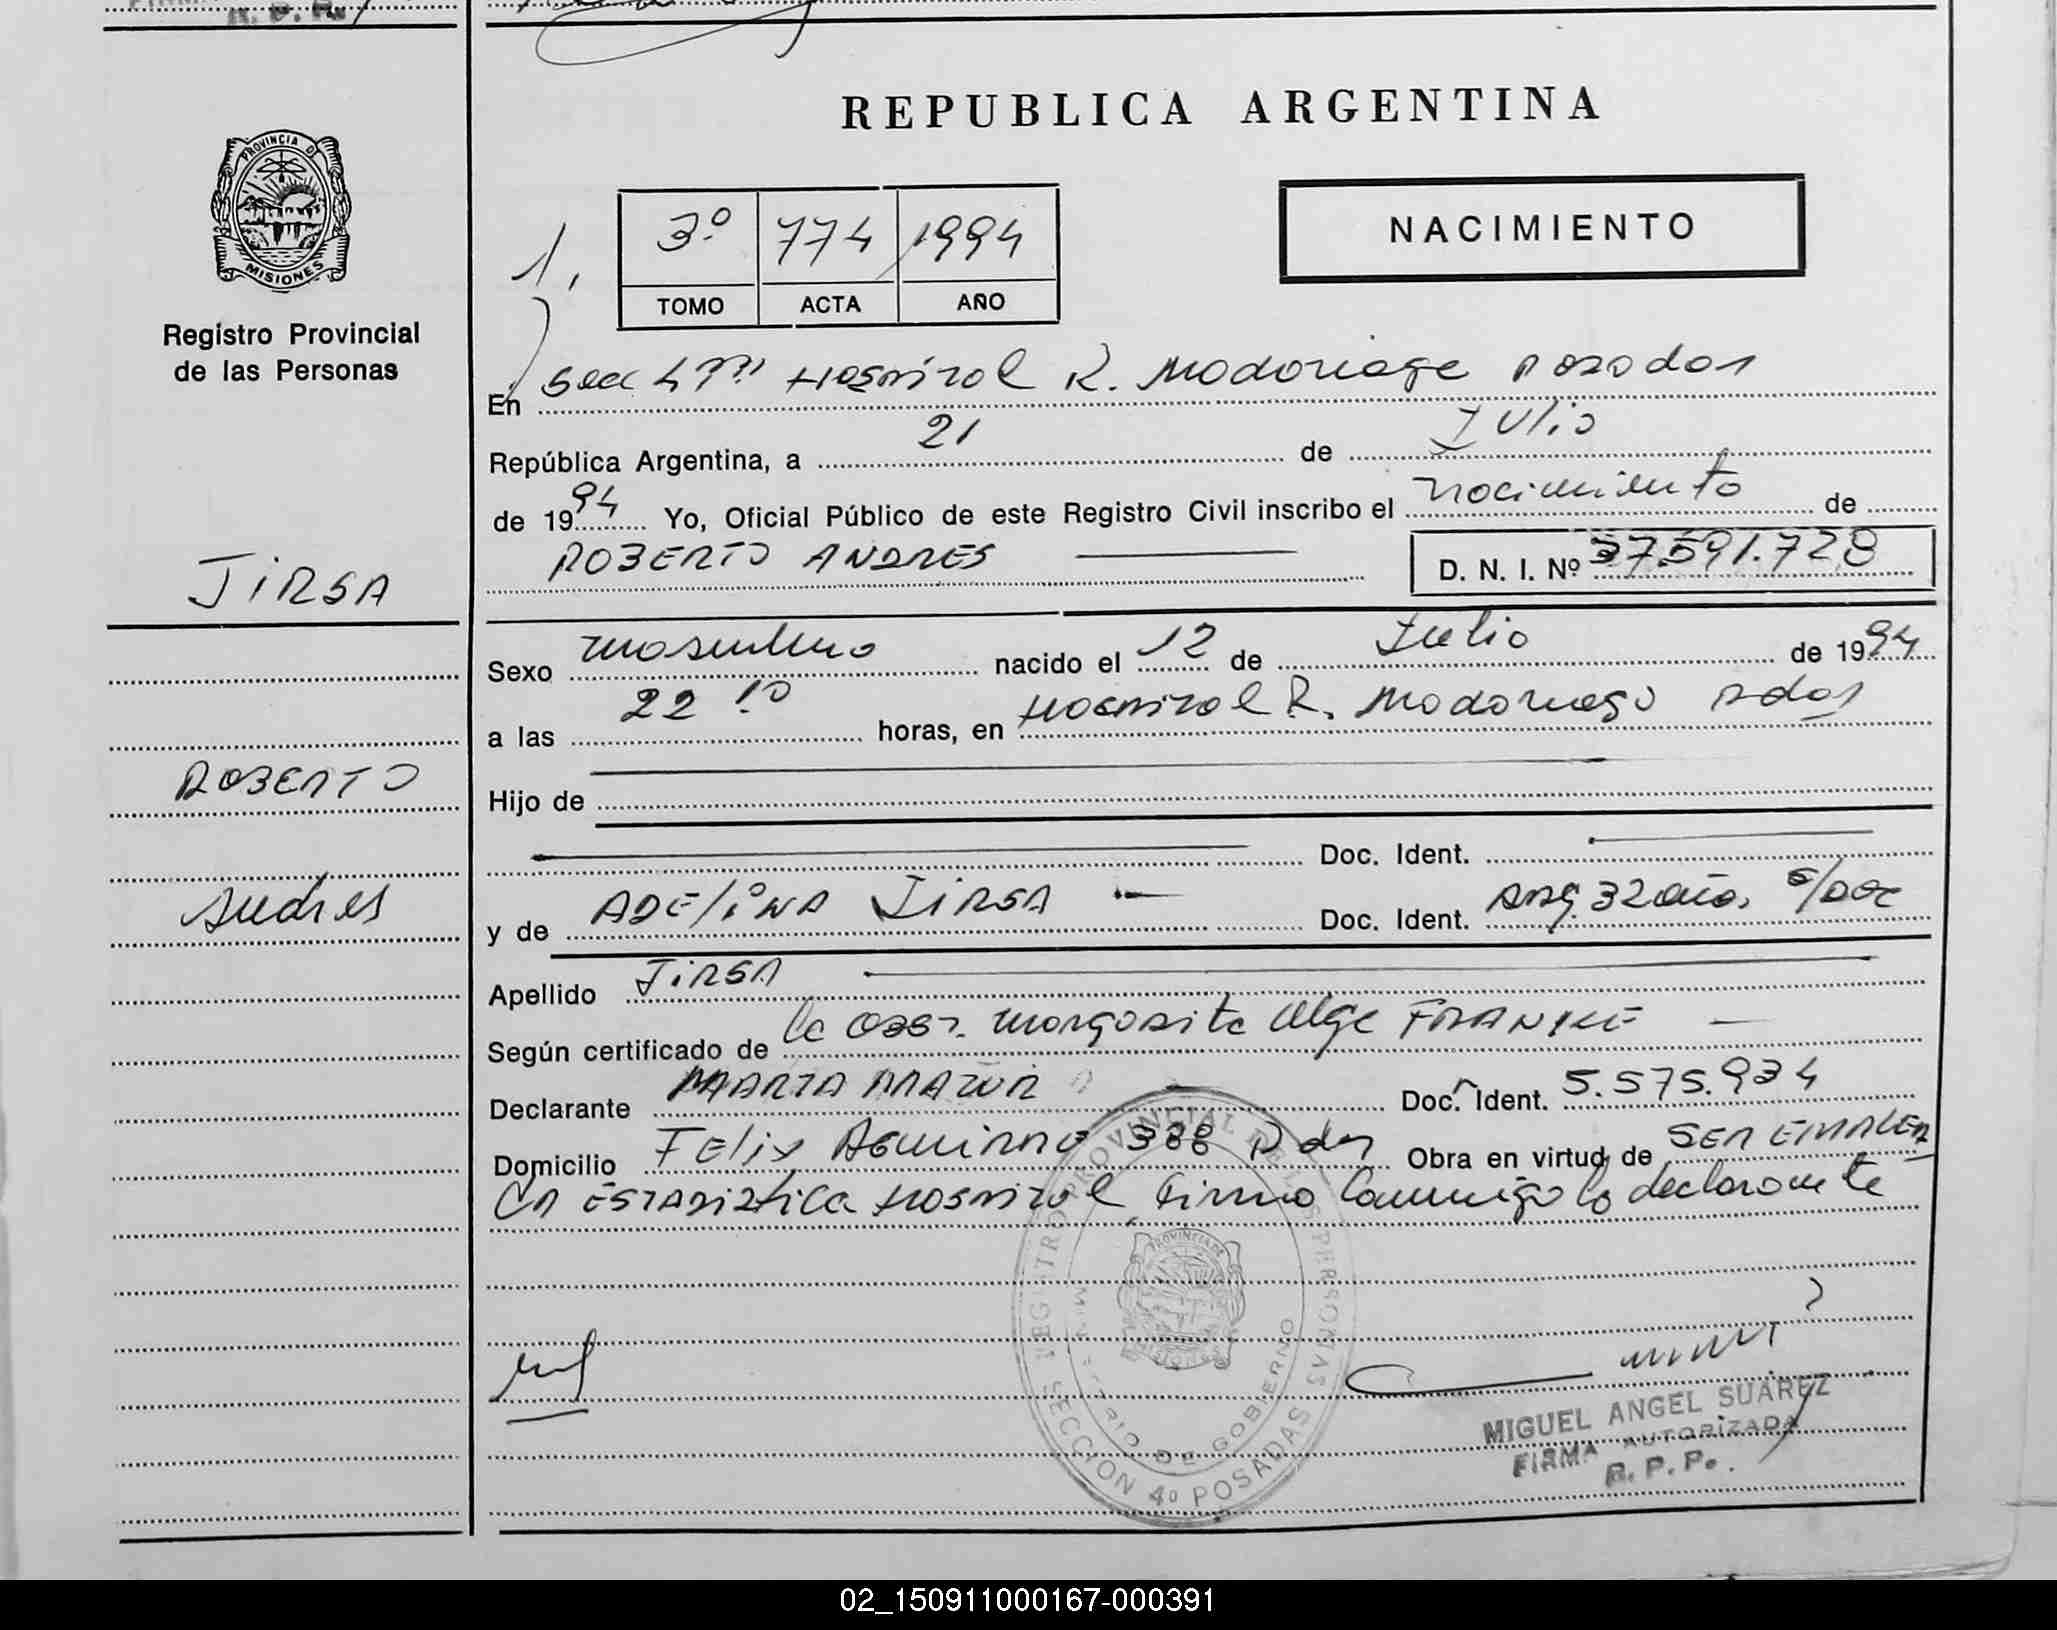 REPUBLICA ARGENTINA
PROVINCIA DE
MISIONES
Registro Provincial
de las Personas
JIRSA
ROBERTO
Andres
1.
3º 774 1994
TOMO ACTA AÑO
NACIMIENTO
En Secc 4ta Hospital R. Madariaga Posadas
República Argentina, a 21 de Julio
de 1994 Yo, Oficial Público de este Registro Civil inscribo el nacimiento de
ROBERTO ANDRES D. N. I. Nº 37.591.728
Sexo masculino nacido el 12 de Julio de 1994
a las 22 10 horas, en Hospital R. Madariaga Pdas
Hijo de
Doc. Ident.
y de ADELINA JIRSA Doc. Ident. Arg. 32 años s/Doc
Apellido JIRSA
Según certificado de la Obst. Margarita Olga FRANKE
Declarante MARTA Doc. Ident. 5.575.934
Domicilio Felix Aguirre 388 Pdas Obra en virtud de SER EMPLEA
da Estadistica Hospital, Firma conmigo la declarante
REGISTRO PROVINCIAL DE LAS PERSONAS
MINISTERIO DE GOBIERNO
SECCION 4º POSADAS
PROVINCIA DE
MISIONES
MIGUEL ANGEL SUAREZ
FIRMA AUTORIZADA
R. P. P.
02_150911000167-000391